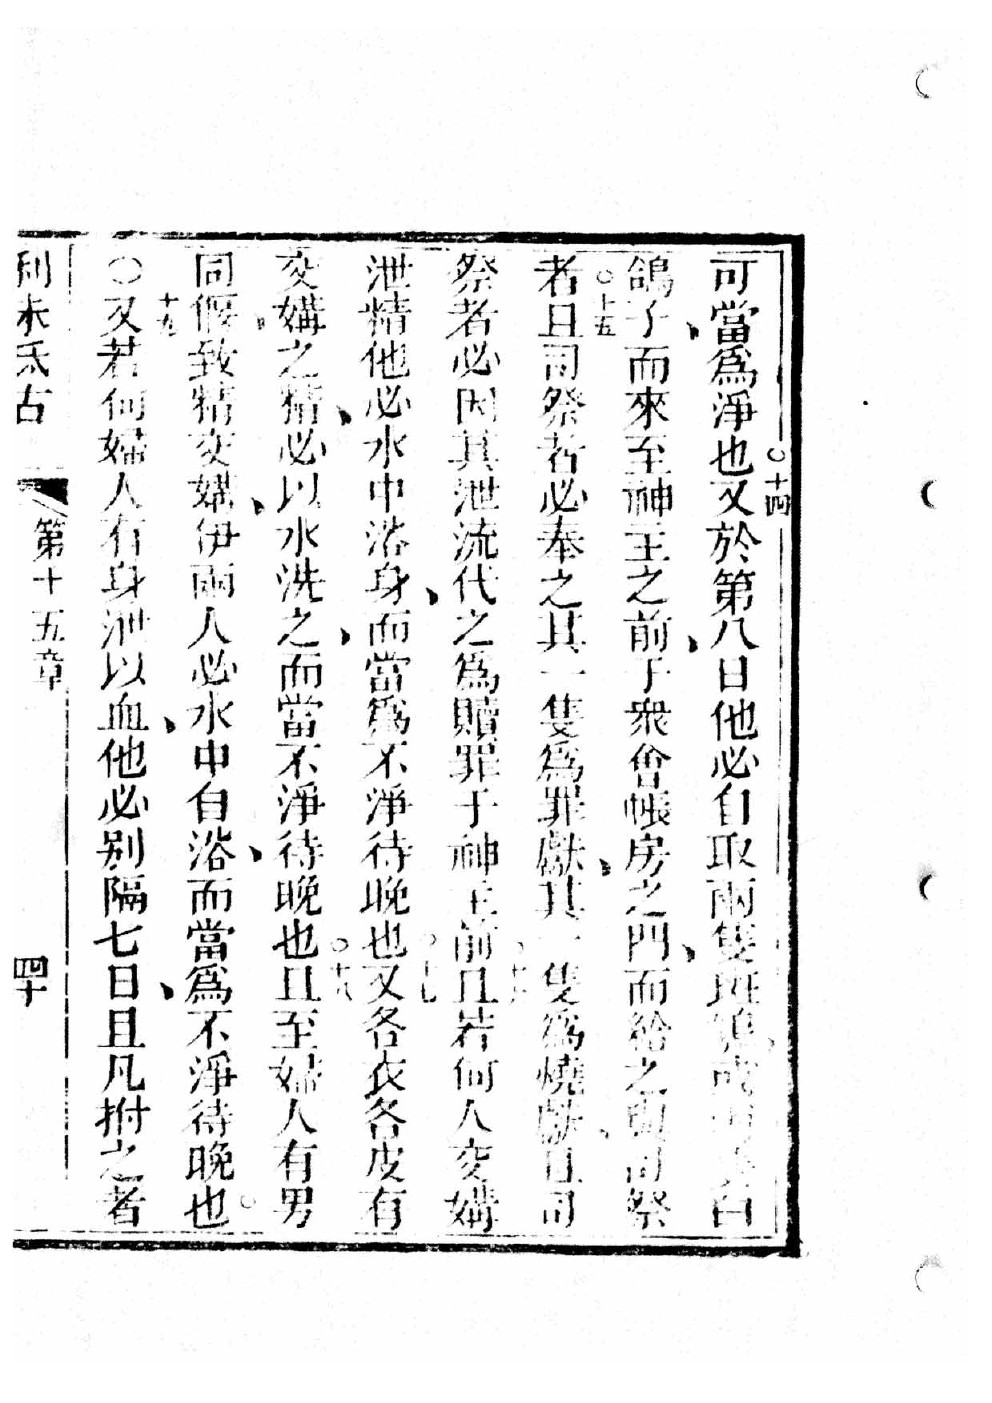 可當爲淨也○十四又於第八日他必自取兩隻斑鳩或兩隻白
鴿子、而來至神主之前、于衆會帳房之門、而給之與司祭
者○十五且司祭者必奉之其一隻爲罪獻、其一隻爲燒獻、且司
祭者必因其泄流代之爲贖罪于神主前○十六且若何人交媾
泄精他必水中浴身、而當爲不淨待晚也○十七又各衣各皮有
交媾之精、必以水洗之、而當不淨待晚也○十八且至婦人有男
同偃、致精交媾、伊兩人必水中自浴、而當爲不淨待晚也。
○十九又若何婦人有身泄以血、他必别隔七日、且凡拊之者
利未氏古 第十五章 四十